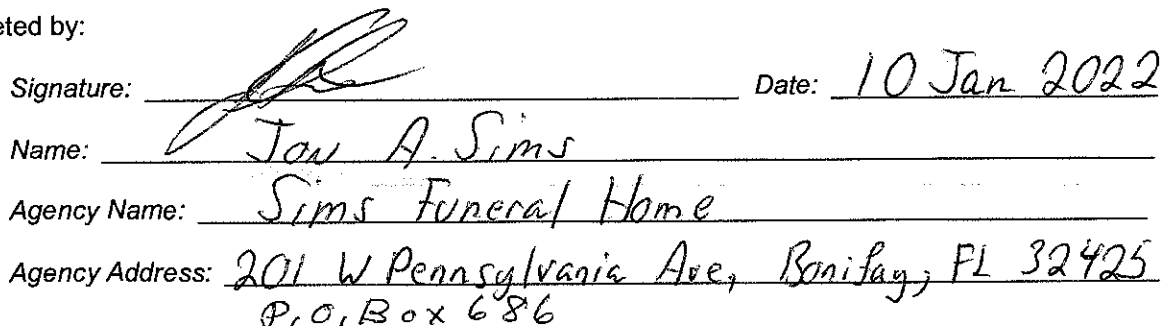 eted by:
Signature: Date: 10 Jan 2022
Name: Jon A. Sims
Agency Name: Sims Funeral Home
Agency Address: 201 W Pennsylvania Ave, Bonifay, FL 32425
P.O. Box 686